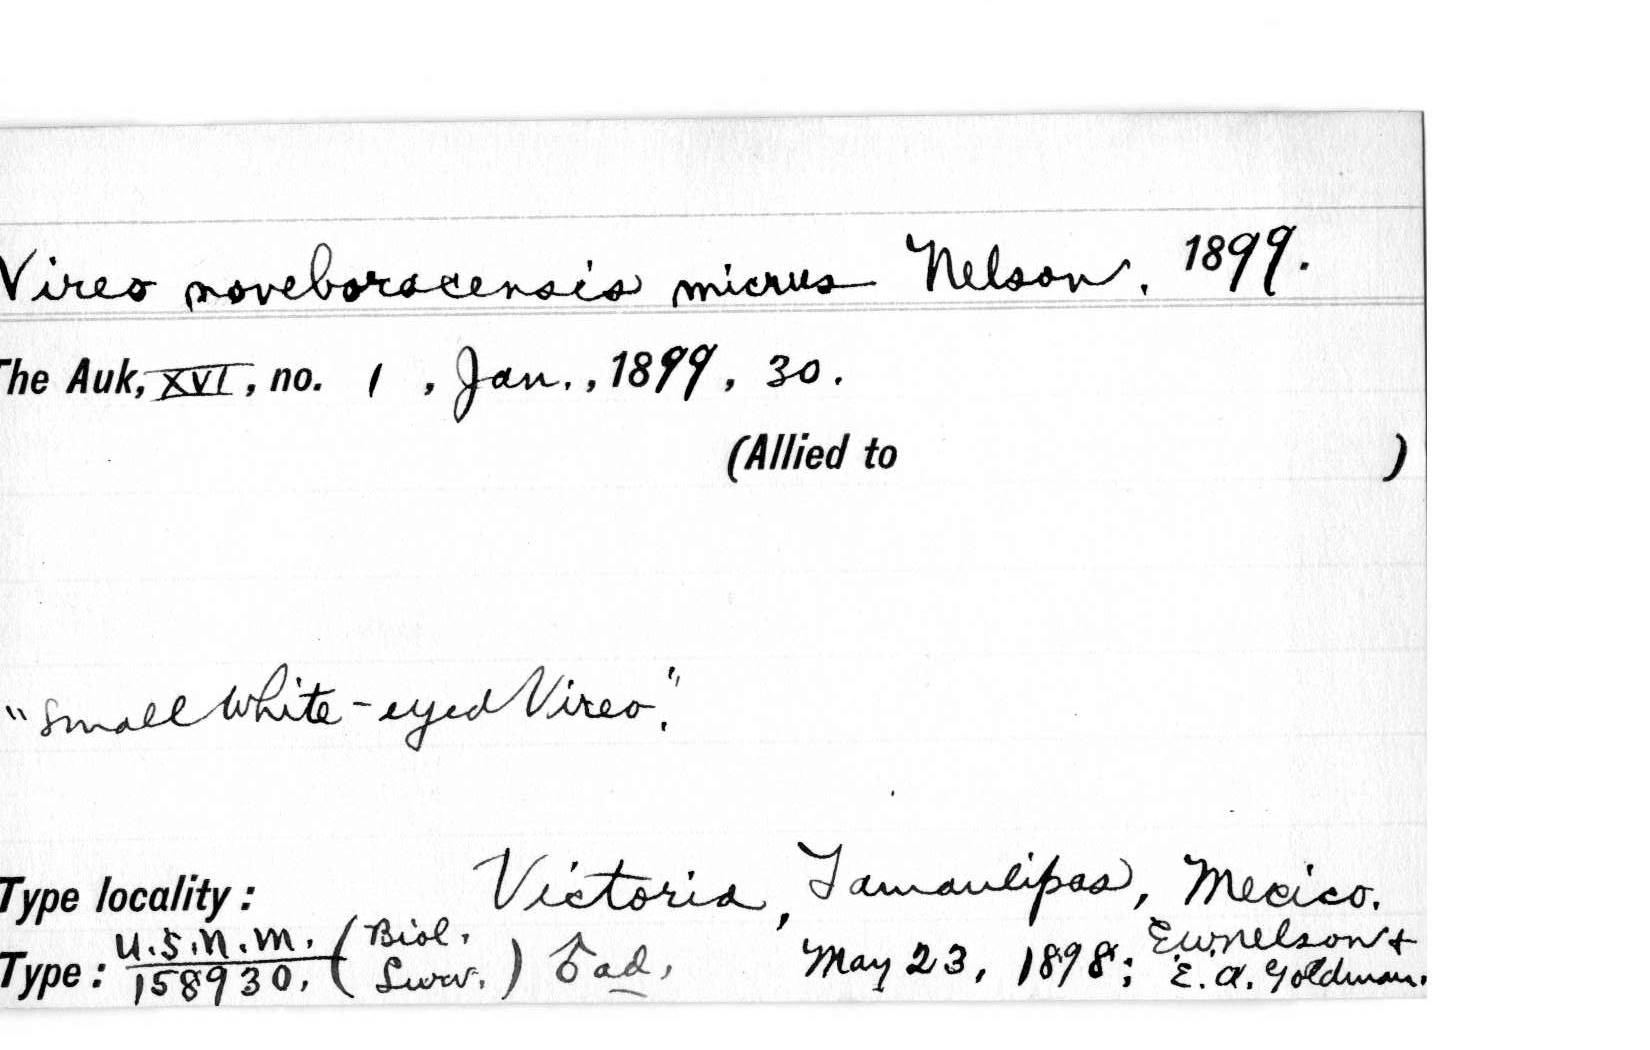 Vireo noveboracensis micrus Nelson, 1899.
The Auk, XVI, no. 1, Jan., 1899, 30.
(Allied to )
"Small White-eyed Vireo."
Type locality: Victoria, Tamaulipas, Mexico.
Type: U.S.N.M. 158930. (Biol. Surv.) ♂ ad. May 23, 1898; E.W. Nelson + E. A. Goldman.